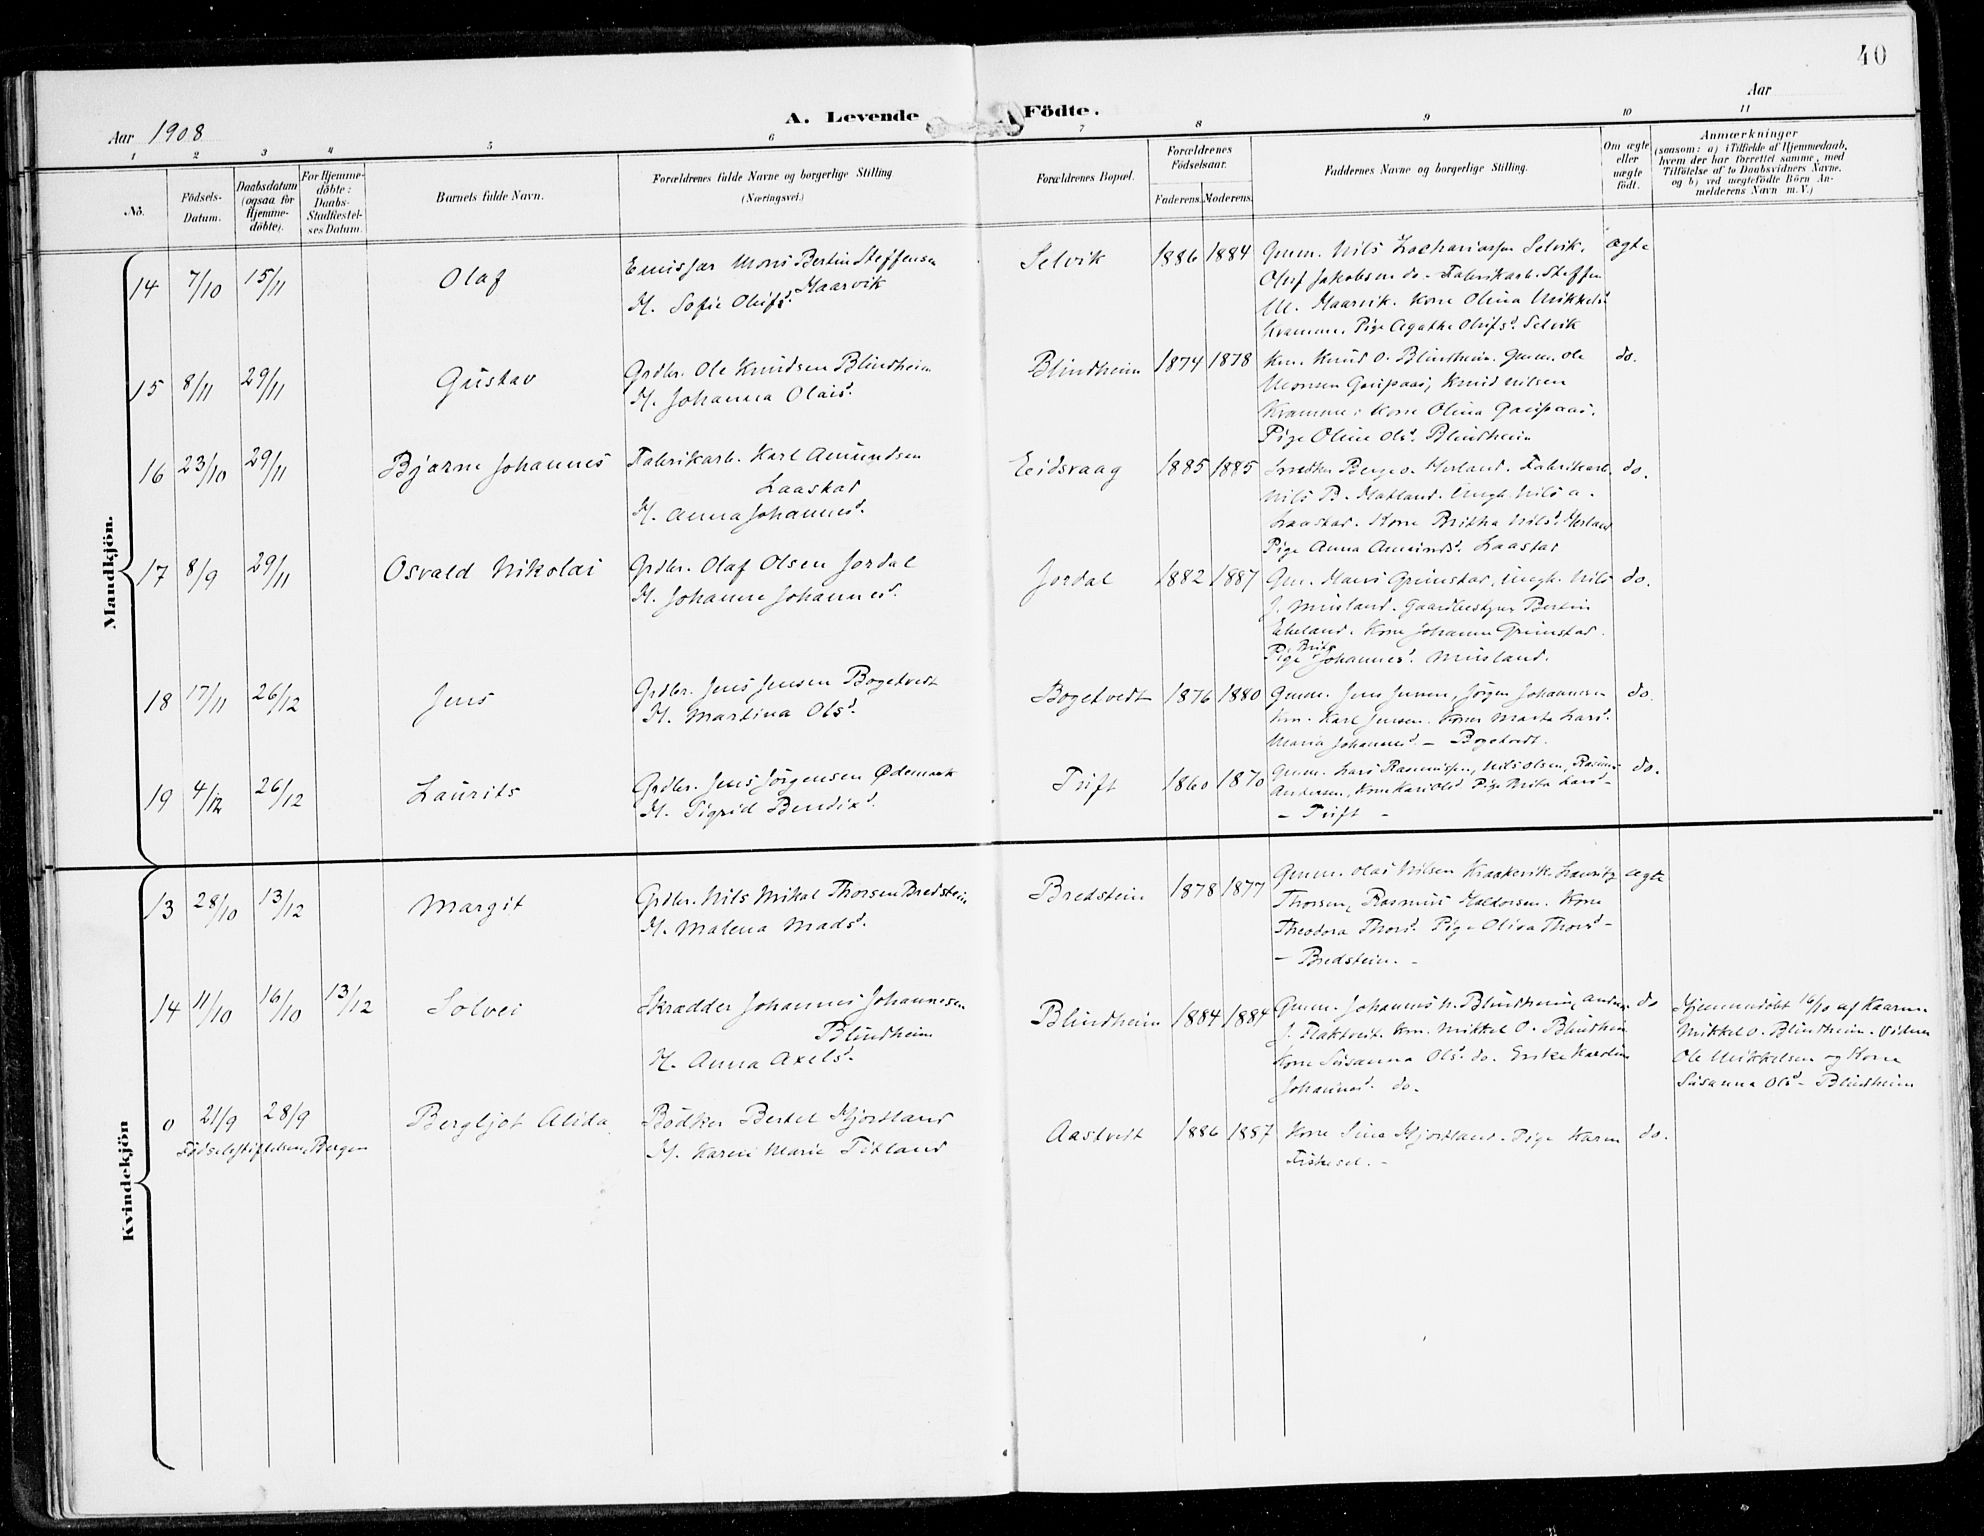 40
Aar 1908
A. Levende Födte.
Aar
1 2 3 4 5 6 7 8 9 10 11
No.
Födsels-Datum.
Daabsdatum (ogsaa for Hjemmedöbte).
For Hjemmedöbte: Daabs-Stadfæstelses Datum.
Barnets fulde Navn.
Forældrenes fulde Navne og borgerlige Stilling
(Næringsvei.)
Forældrenes Bopæl.
Forældrenes Födselsaar.
Faderens. Moderens.
Faddernes Navne og borgerlige Stilling.
Om ægte eller uægte födt.
Anmærkninger
(saasom: a) i Tilfælde af Hjemmedaab,
hvem der har forrettet samme, med
Tilföielse af to Daabsvidners Navne,
og b) ved uægtefödte Börn Anmelderens Navn m. V.)
Mandkjön.
14 7/10 15/11 Olaf
Emissær Mons Bertin Steffensen
Haarvik
H. Sofie Olufsd.
Selvik 1886 1884
Gmm. Nils Zachariassen Selvik.
Oluf Jakobsen do. Fabrikarb. Steffen
M. Haarvik. Kone Olina Mikkelsd.
Kramme. Pige Agathe Olufsd. Selvik
ægte
15 8/11 29/11 Gustav
Grdbr. Ole Knudsen Blindheim
H. Johanna Olaisd.
Blindheim 1874 1878
Km. Knud O. Blindheim. Gmm. Ole
Monsen Gaupaas, Knud Nilsen
Kramme. Kone Olina Gaupaas.
Pige Oline Olsd. Blindheim
do.
16 23/10 29/11 Bjarne Johannes
Fabrikarb. Karl Amundsen
Laastad
H. Anna Johannesd.
Eidsvaag 1885 1885
Berge O. Herland. Fabrikarb.
Nils B. Hatland. Ungk. Nils A.
Laastad. Kone Britha Nilsd. Herland
Pige Anna Amundsd. Laastad
do.
17 8/9 29/11 Osvald Nikolai
Grdbr. Olaf Olsen Jordal
H. Johanne Johannesd.
Jordal 1882 1887
Gm. Hans Grimstad, Ungk. Nils
J. Musland. Gaardbestyrer Bertin
Ekeland. Kone Johanne Grimstad.
Pige Brita Johannesd. Musland.
do.
18 17/11 26/12 Jens
Grdbr. Jens Jensen Bogetvedt
H. Martina Olsd.
Bogetvedt 1876 1880
Gmm. Jens Jensen, Jörgen Johannesen
Km. Karl Jensen. Koner Marta Larsd.
Maria Johannesd. – Bogetvedt.
do.
19 4/12 26/12 Laurits
Grdbr. Jens Jörgensen Ødemark
H. Sigrid Bendixd.
Tuft 1860 1870
Gmm. Lars Rasmussen, Nils Olsen, Rasmus
Andersen, Kone Kari Olsd. Pige Brita Larsd –
– Tuft –
do.
Kvindekjön
13 28/10 13/12 Margit
Grdbr. Nils Mikal Thorsen Bredstein
H. Malena Madsd.
Bredstein 1878 1877
Gmm. Olai Nilsen Kraakevik. Lauritz
Thorsen, Rasmus Haldorsen. Kone
Theodora Thorsd. Pige Oliva Thorsd –
– Bredstein. –
ægte
14 11/10 16/10 13/12 Solvei
Skrædder Johannes Johannesen
Blindheim
H. Anna Axelsd.
Blindheim 1884 1884
Gmm. Johannes N. Blindheim, Anders
J. Flaktveit. Km. Mikkel O. Blindheim
Kone Susanna Olsd. do. Enke Karolina
Johannesd. do.
do
Hjemmedöbt 16/10 af Kaarm.
Mikkel O. Blindheim. Vidner
Ole Mikkelsen og Kone
Susanna Olsd – Blindheim
0 21/9 28/9 Bergljot Alida
Födselsstiftelsen, Bergen
Bödker Bertel Hjortland
H. Karen Marie Titland
Aastvedt 1886 1887
Kone Sina Hjortland. Pige Karen
Fiskeset. –
do.